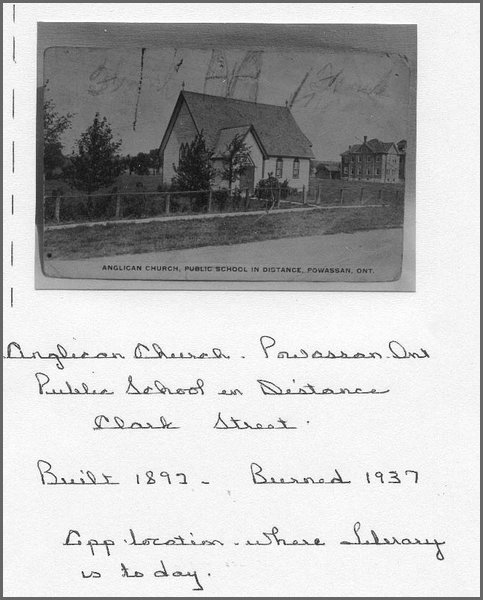 ANGLICAN CHURCH, PUBLIC SCHOOL IN DISTANCE, POWASSAN, ONT.
Anglican Church - Powassan Ont
Public School in Distance
Clark Street.
Built 1897 - Burned 1937
Opp. location - where Library
is today.